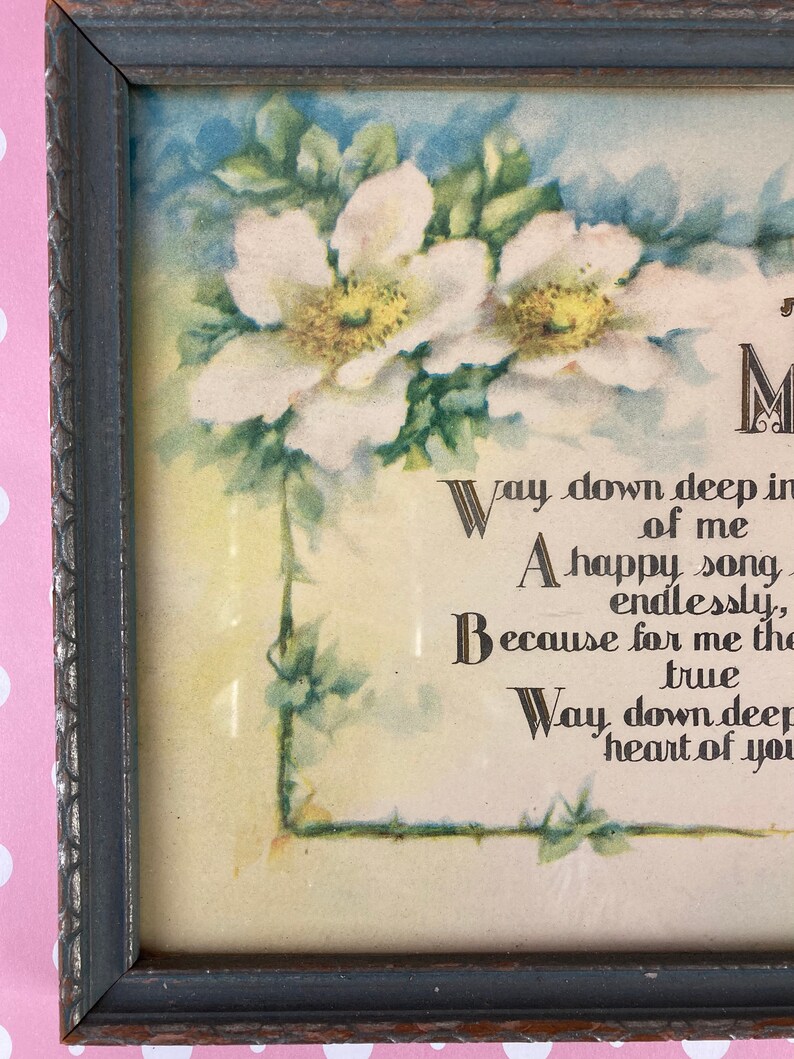 M
Way down deep in
of me
A happy song
endlessly,
Because for me the
true
Way down deep
heart of you